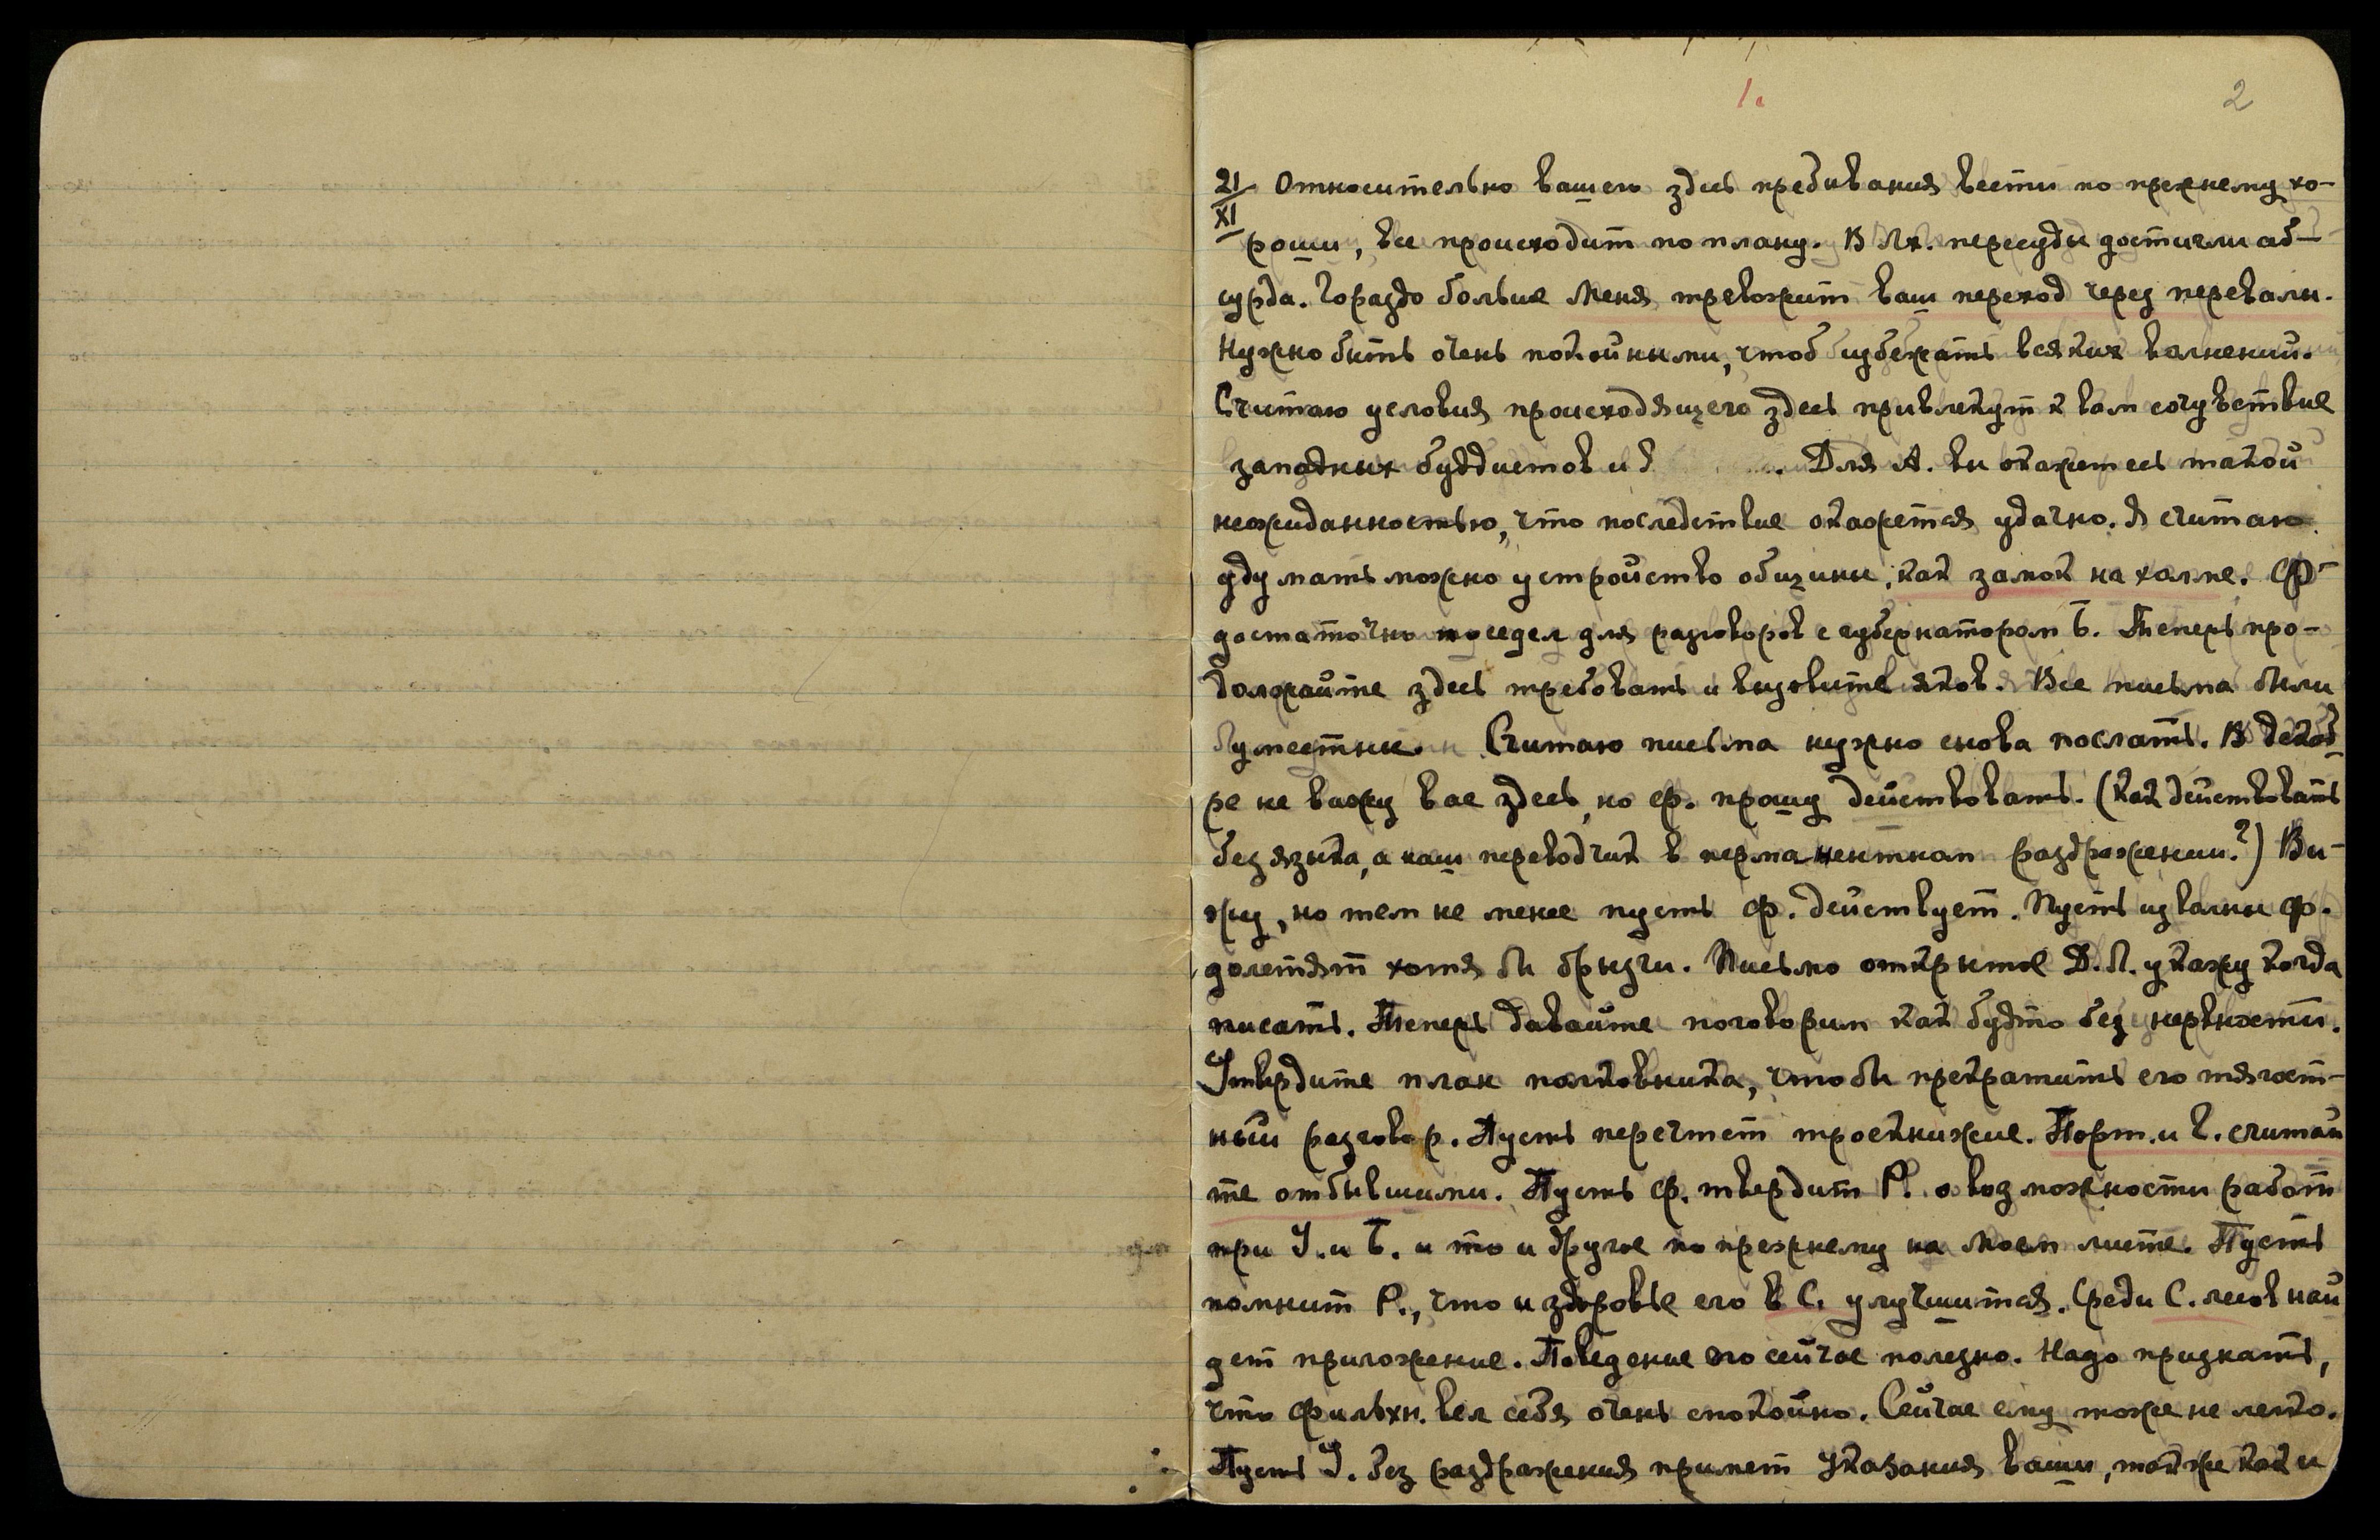 1.
2
21/XI Относительно вашего здесь пребывания вести по прежнему хо-
роши, все происходит по плану. В Лх. пересуды достигли аб-
сурда. Гораздо больше Меня тревожит ваш переход через перевалы.
Нужно быть очень покойными, чтоб избежать всяких волнений.
Считаю условия происходящего здесь привлекут к вам сочувствие
западных буддистов и . Для А. вы окажетесь такой
неожиданностью, что последствие окажется удачно. Я считаю
удумать можно устройство общины, как замок на холме. Ф
достаточно посидел для разговоров с губернатором Б. Теперь про-
должайте здесь требовать и вызовите яков. Все письма были
уместны. Считаю письма нужно снова послать. В декаб
ре не вижу вас здесь, но ф. прошу действовать. (Как действовать
без языка, а наш переводчик в перманентном раздражении?) Ви-
жу, но тем не менее пусть ф. действует. Пусть из волны ф.
долетят хотя бы брызги. Письмо открытое Д.Л. укажу когда
писать. Теперь давайте поговорим как будто без нервности.
Утвердите план полковника, чтобы прекратить его тягост-
ный разговор. Пусть перечтет троекнижие. Порт. и Г. считай
те отбывшими. Пусть ф. твердит Р. о возможности работ
при У. и Б. и то и другое по прежнему на Моем листе. Пусть
помнит Р., что и здоровье его в С. улучшится. Среди С. лесов най
дет приложение. Поведение его сейчас полезно. Надо признать,
что Фильхн. вел себя очень спокойно. Сейчас ему тоже не легко.
Пусть У. без раздражения примет Указания ваши, также как и